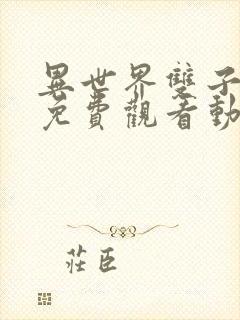 異世界雙子
免費觀看動
莊臣